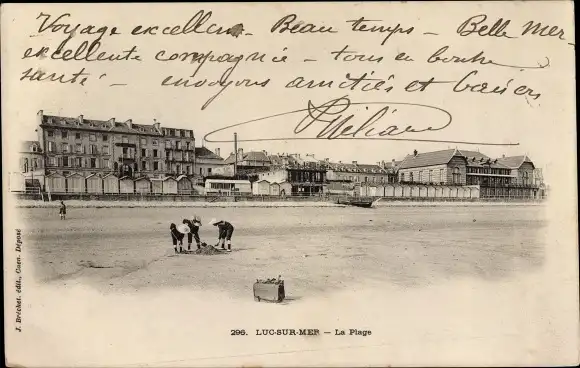 Voyage excellent - Beau temps - Belle Mer -
excellente compagnie - tous en bonne
santé - envoyons amitiés et baisers
J. Bréchet, édit., Caen. Déposé
296. LUC-SUR-MER - La Plage